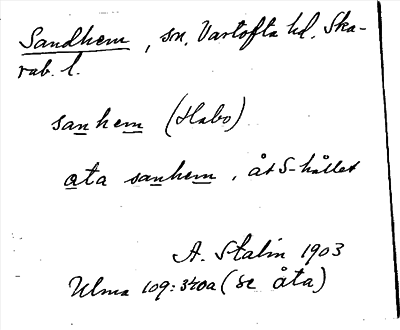 Sandhem, sn, Vartofta hd, Ska-
rab. l.
sanhem (Habo)
ata sanhem, åt S-hållet
A. Stalin 1903
Ulma 109:340a (se åta)